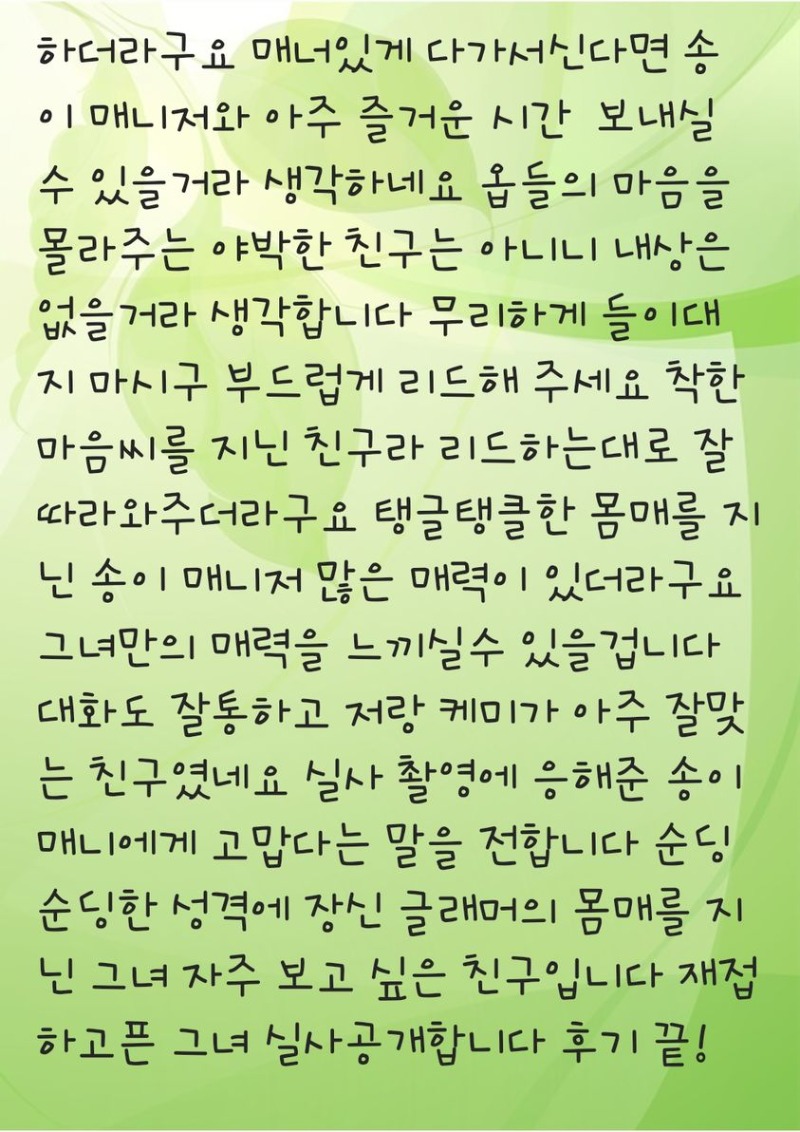 하더라구요 매너있게 다가서신다면 송
이 매니저와 아주 즐거운 시간 보내실
수 있을거라 생각하네요 옵들의 마음을
몰라주는 야박한 친구는 아니니 내상은
없을거라 생각합니다 무리하게 들이대
지 마시구 부드럽게 리드해 주세요 착한
마음씨를 지닌 친구라 리드하는대로 잘
따라와주더라구요 탱글탱클한 몸매를 지
닌 송이 매니저 많은 매력이 있더라구요
그녀만의 매력을 느끼실수 있을겁니다
대화도 잘통하고 저랑 케미가 아주 잘맞
는 친구였네요 실사 촬영에 응해준 송이
매니에게 고맙다는 말을 전합니다 순딩
순딩한 성격에 장신 글래머의 몸매를 지
닌 그녀 자주 보고 싶은 친구입니다 재접
하고픈 그녀 실사공개합니다 후기 끝!